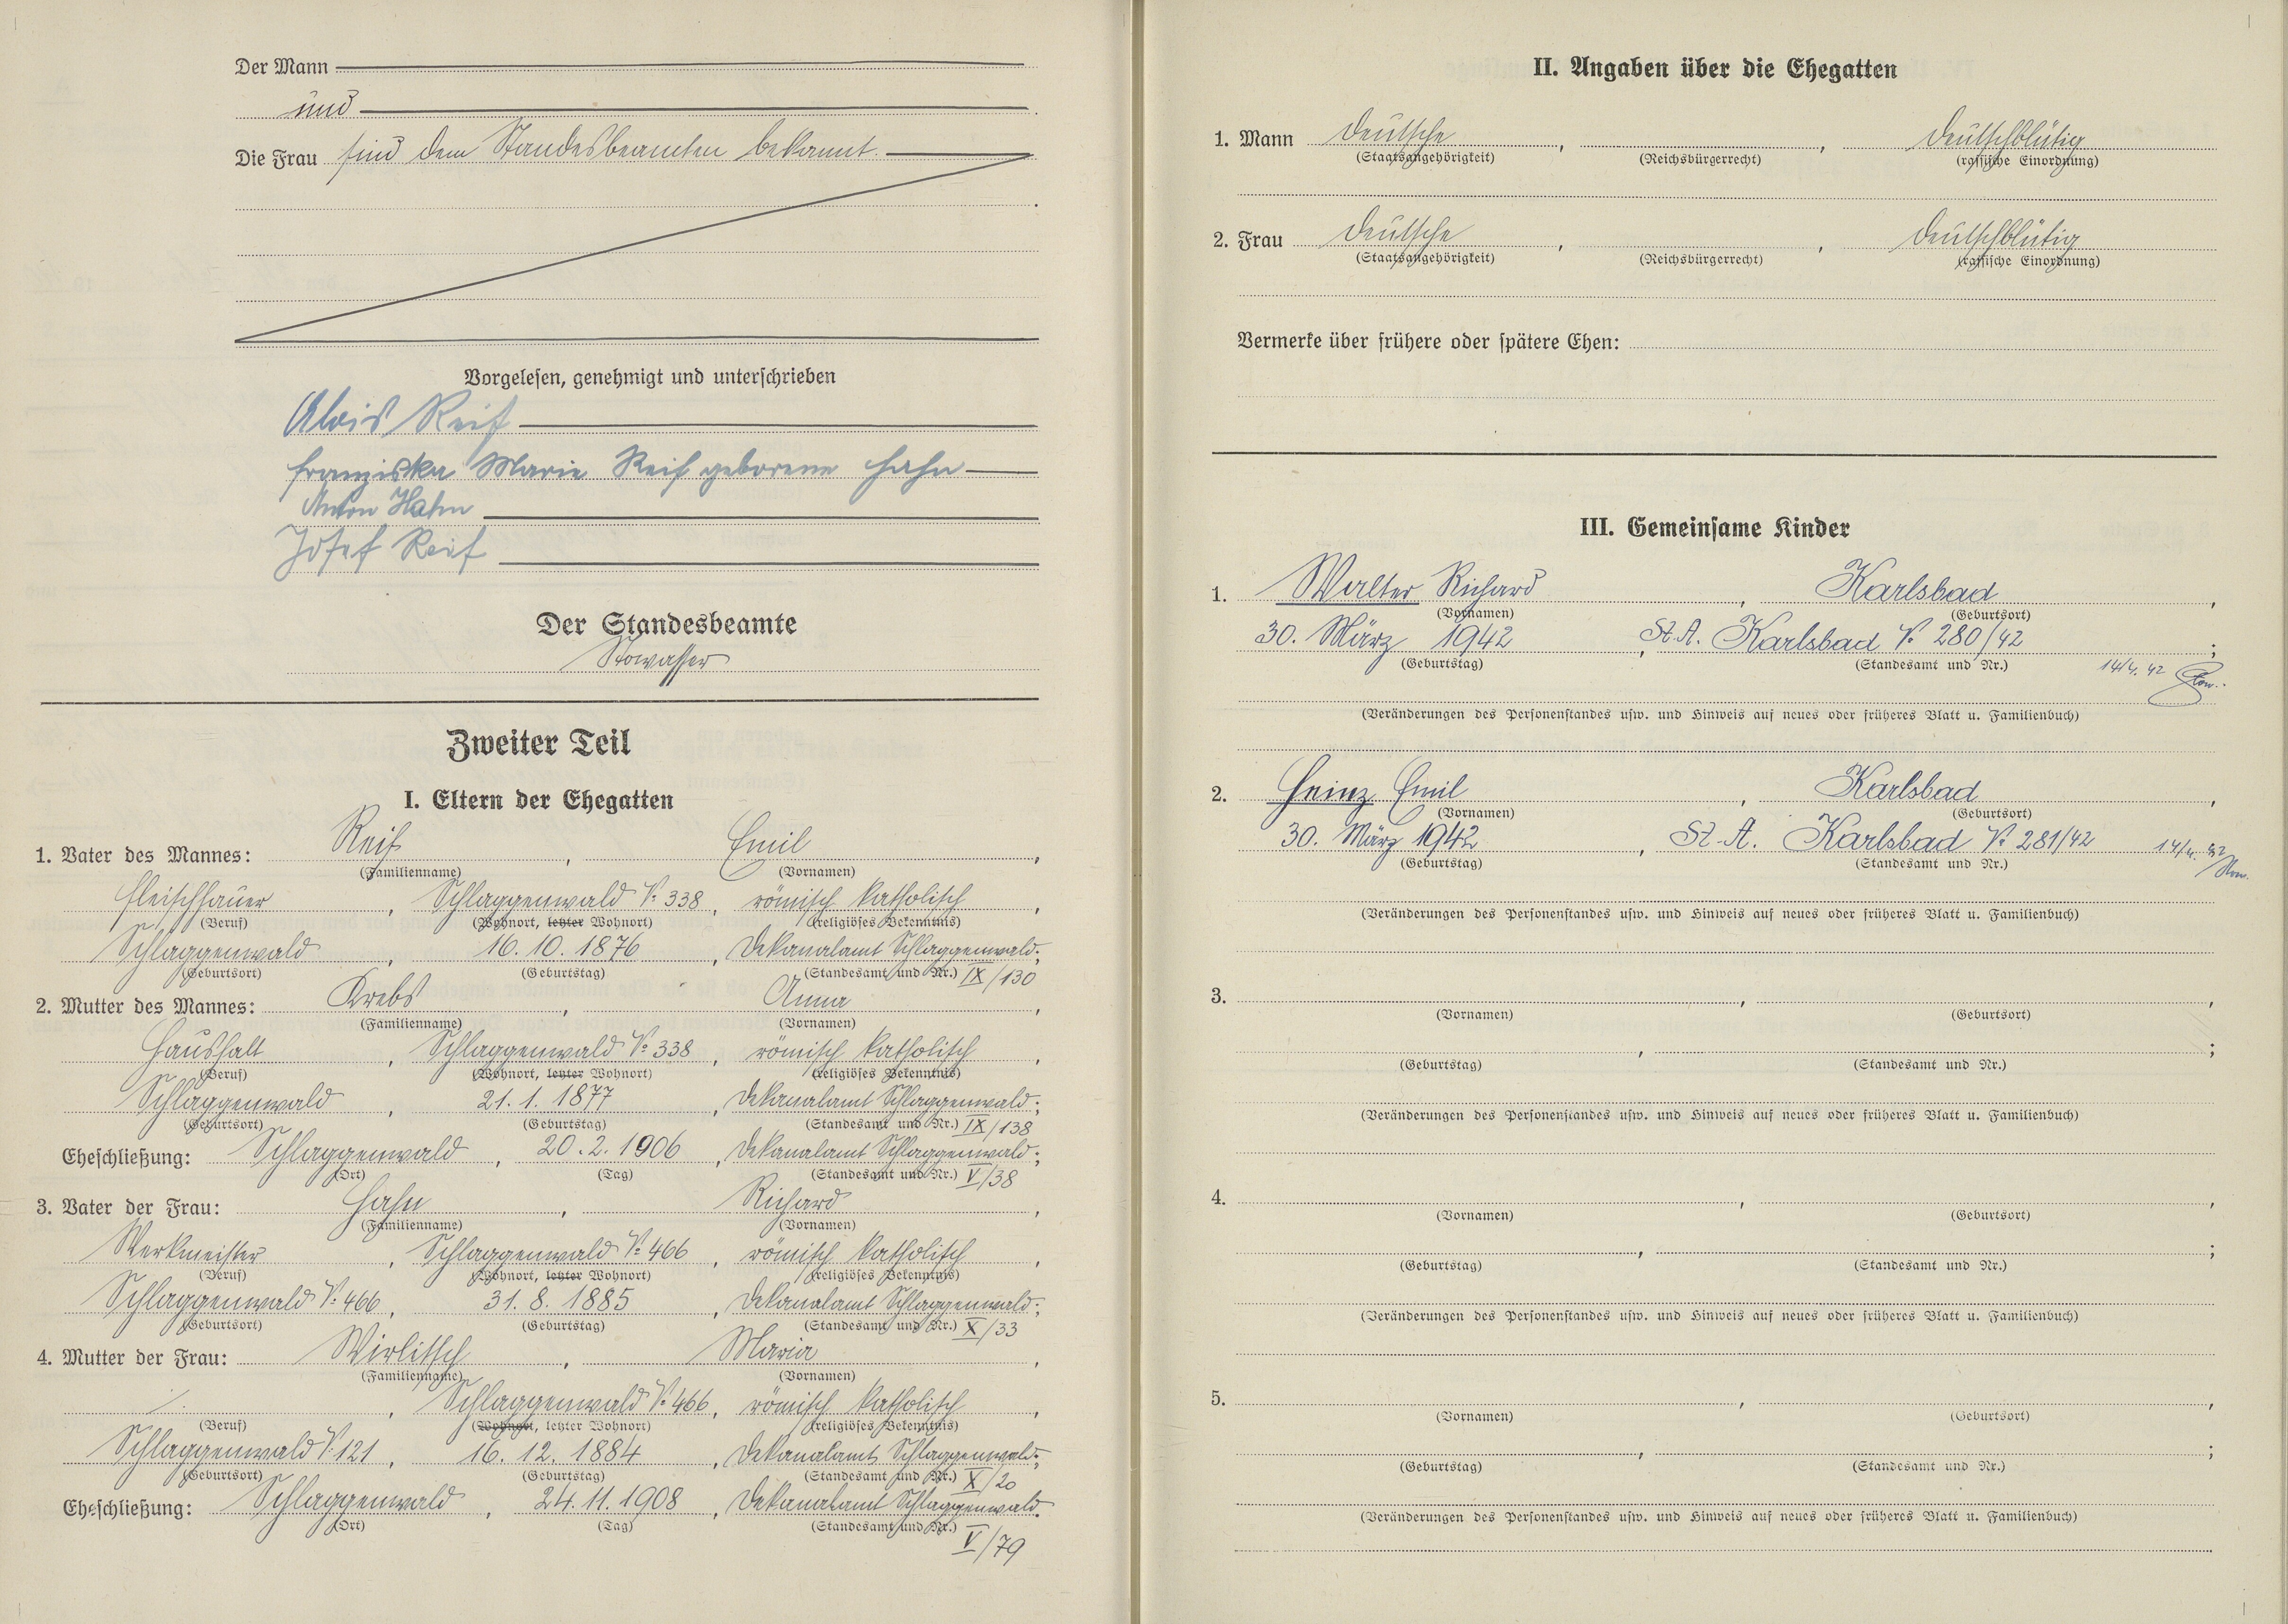 Der Mann
und
Die Frau sind dem Standesbeamten bekannt.
Vorgelesen, genehmigt und unterschrieben
Alois Reif
Franziska Marie Reif geborene Hahn
Anton Hahn
Josef Reif
Der Standesbeamte
Stowasser
Zweiter Teil
I. Eltern der Ehegatten
1. Vater des Mannes: Reif, Emil,
(Familienname) (Vornamen)
Fleischhauer, Schlaggenwald No 338, römisch katholisch,
(Beruf) (Wohnort, letzter Wohnort) (religiöses Bekenntnis)
Schlaggenwald, 16. 10. 1876, Dekanalamt Schlaggenwald;
(Geburtsort) (Geburtstag) (Standesamt und Nr.) IX/130
2. Mutter des Mannes: Krebs, Anna,
(Familienname) (Vornamen)
Haushalt, Schlaggenwald No 338, römisch katholisch,
(Beruf) (Wohnort, letzter Wohnort) (religiöses Bekenntnis)
Schlaggenwald, 21. 1. 1877, Dekanalamt Schlaggenwald;
(Geburtsort) (Geburtstag) (Standesamt und Nr.) IX/138
Eheschließung: Schlaggenwald, 20. 2. 1906, Dekanalamt Schlaggenwald;
(Ort) (Tag) (Standesamt und Nr.) V/38
3. Vater der Frau: Hahn, Richard,
(Familienname) (Vornamen)
Werkmeister, Schlaggenwald No 466, römisch katholisch,
(Beruf) (Wohnort, letzter Wohnort) (religiöses Bekenntnis)
Schlaggenwald No 466, 31. 8. 1885, Dekanalamt Schlaggenwald;
(Geburtsort) (Geburtstag) (Standesamt und Nr.) X/33
4. Mutter der Frau: Wirlitsch, Maria,
(Familienname) (Vornamen)
Schlaggenwald No 466, römisch katholisch,
(Beruf) (Wohnort, letzter Wohnort) (religiöses Bekenntnis)
Schlaggenwald No 121, 16. 12. 1884, Dekanalamt Schlaggenwald;
(Geburtsort) (Geburtstag) (Standesamt und Nr.) X/20
Eheschließung: Schlaggenwald, 24. 11. 1908, Dekanalamt Schlaggenwald.
(Ort) (Tag) (Standesamt und Nr.)
V/79
II. Angaben über die Ehegatten
1. Mann Deutsche, , Deutschblütig
(Staatsangehörigkeit) (Reichsbürgerrecht) (rassische Einordnung)
2. Frau Deutsche, , Deutschblütig
(Staatsangehörigkeit) (Reichsbürgerrecht) (rassische Einordnung)
Vermerke über frühere oder spätere Ehen:
III. Gemeinsame Kinder
1. Walter Richard, Karlsbad,
(Vornamen) (Geburtsort)
30. März 1942, St. A. Karlsbad No 280/42;
(Geburtstag) (Standesamt und Nr.) 14/4. 42 Stow.
(Veränderungen des Personenstandes usw. und Hinweis auf neues oder früheres Blatt u. Familienbuch)
2. Heinz Emil, Karlsbad,
(Vornamen) (Geburtsort)
30. März 1942, St. A. Karlsbad No 281/42 14/4. 42
(Geburtstag) (Standesamt und Nr.) Stow.
(Veränderungen des Personenstandes usw. und Hinweis auf neues oder früheres Blatt u. Familienbuch)
3. , ,
(Vornamen) (Geburtsort)
, ;
(Geburtstag) (Standesamt und Nr.)
(Veränderungen des Personenstandes usw. und Hinweis auf neues oder früheres Blatt u. Familienbuch)
4. , ,
(Vornamen) (Geburtsort)
, ;
(Geburtstag) (Standesamt und Nr.)
(Veränderungen des Personenstandes usw. und Hinweis auf neues oder früheres Blatt u. Familienbuch)
5. , ,
(Vornamen) (Geburtsort)
, ;
(Geburtstag) (Standesamt und Nr.)
(Veränderungen des Personenstandes usw. und Hinweis auf neues oder früheres Blatt u. Familienbuch)